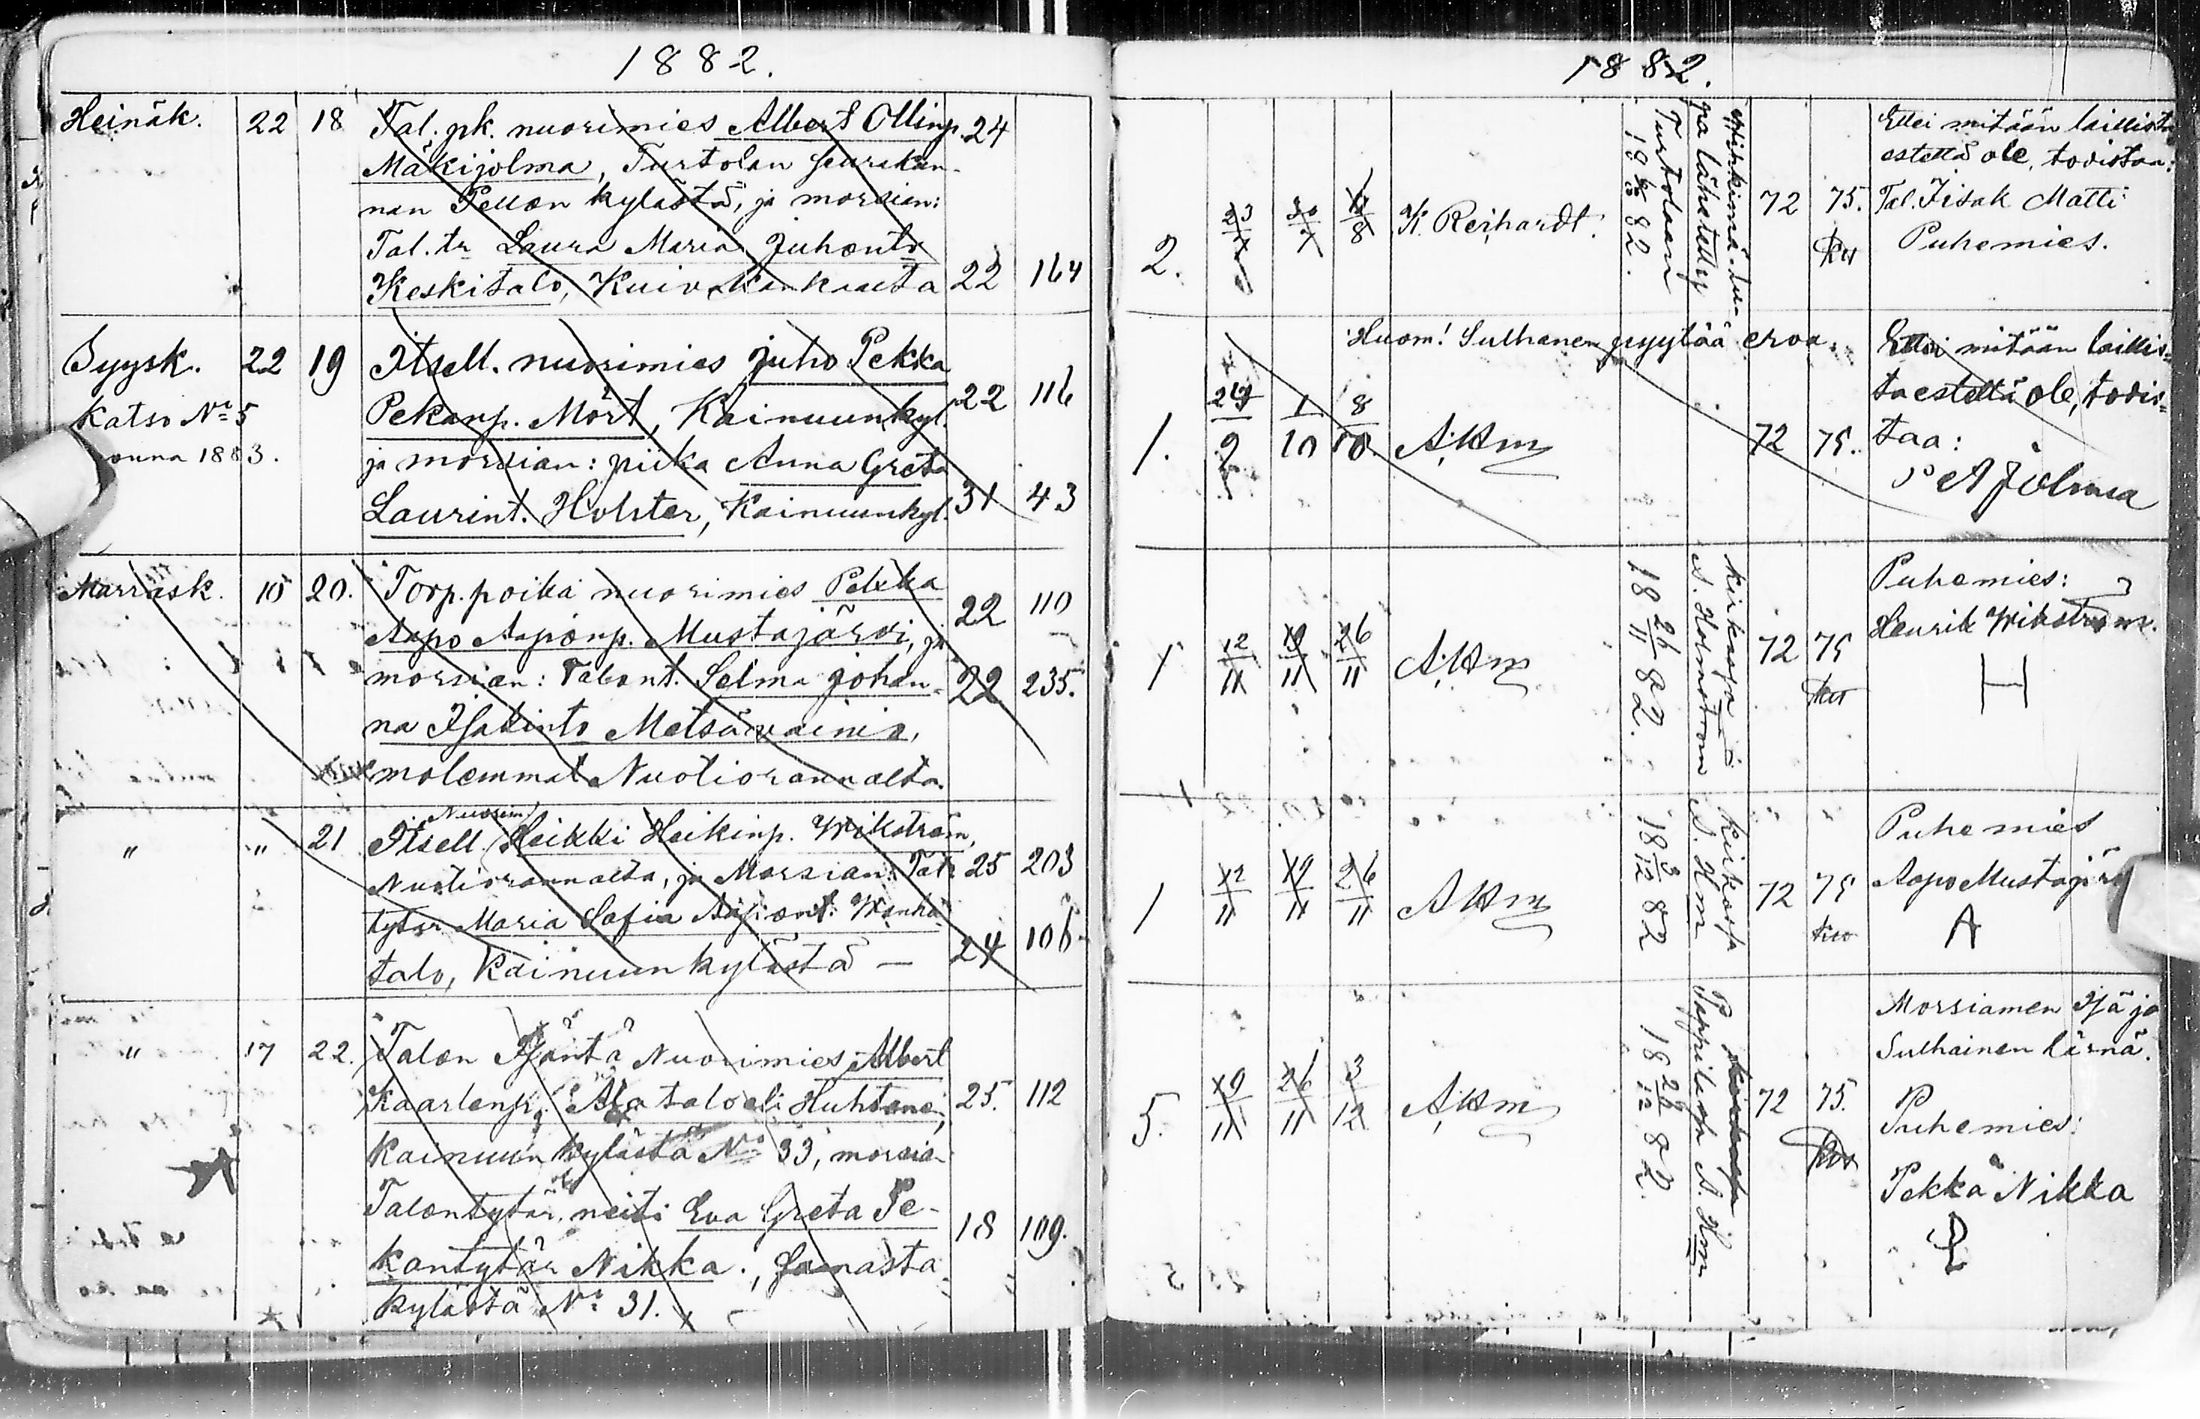 1882.
Heinäk. 22 18 Tal. pk. nuorimies Albert Ollinp. 24
Mäkijolma, Turtolan seurakun-
nan Pellon kylästä, ja morsian:
Tal. tr Laura Maria Juhont.
Keskitalo, Kuivakankaalta 22 164
Syysk. 22 19 Itsell. nuorimies Juho Pekka
Katso No 5
1883.
Pekanp. Mört, Kainuunkyl. 22 116
ja morsian: piika Anna Greta
Laurint. Holster, Kainuunkyl. 31 43
Marrask. 10 20. Torp. poika nuorimies Pekka
Aapo Aaponp. Mustajärvi, ja 22 110
morsian: Talont. Selma Johan- 22 235.
na Isakint. Metsävainio,
molemmat Nuotiorannalta.
Nuorim.
" " 21 Itsell. Heikki Heikinp. Wikström,
Nuotiorannalta, ja Morsian: Tal. 25 203
tytär Maria Sofia Aapont. Wanha
talo, Kainuunkylästä — 24 106
" 17 22. Talon Isäntä Nuorimies Albert
Kaarlenp. Alatalo eli Huhtanen, 25. 112
Kainuun kylästä No 33, morsia-
Talontytär, neiti Eva Greta Pe-
kantytär Nikka., samasta 18 109.
kylästä No 31.
1882.
2. 23/7 30/7 8 K. Reihardt.
Turtolaan
18 82.
72 75.
Ellei mitään laillista
estettä ole, todistaa:
Tal. Iisak Matti
Puhemies.
Huom! Sulhanen pyytää eroa.
1. 24/9 1/10 8/10 A.Hm 72 75.
Ellei mitään laillis-
ta estettä ole, todis-
taa:
A Jolma
1 12/11 19/11 26/11 A.Hm
Kirkossa
A. Holmström
18 26/11 82.
72 75
Puhemies:
Henrik Wikström.
H
1 12/11 19/11 26/11 A Hm
Kirkossa
A. Hm
18 3/12 82
72 75
Puhemies
Aapo Mustajärv
A
5. 19/11 26/11 3/12 A.Hm
Pappilassa A. Hm
18 28/12 82.
72 75.
Morsiamen Isä ja
Sulhainen läsnä.
Puhemies:
Pekka Nikka